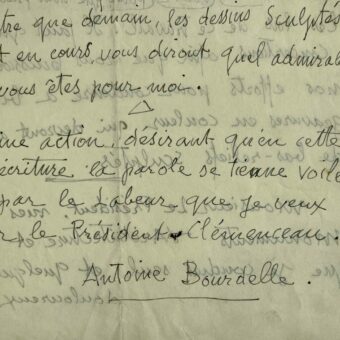 tre que demain, les dessins sculptés
t en cours, vous diront quel admirab
vous êtes pour moi.
ine action, désirant qu'en cette
écriture la parole se tienne voile
par le Labeur que je veux
r le Président Clémenceau.
Antoine Bourdelle.